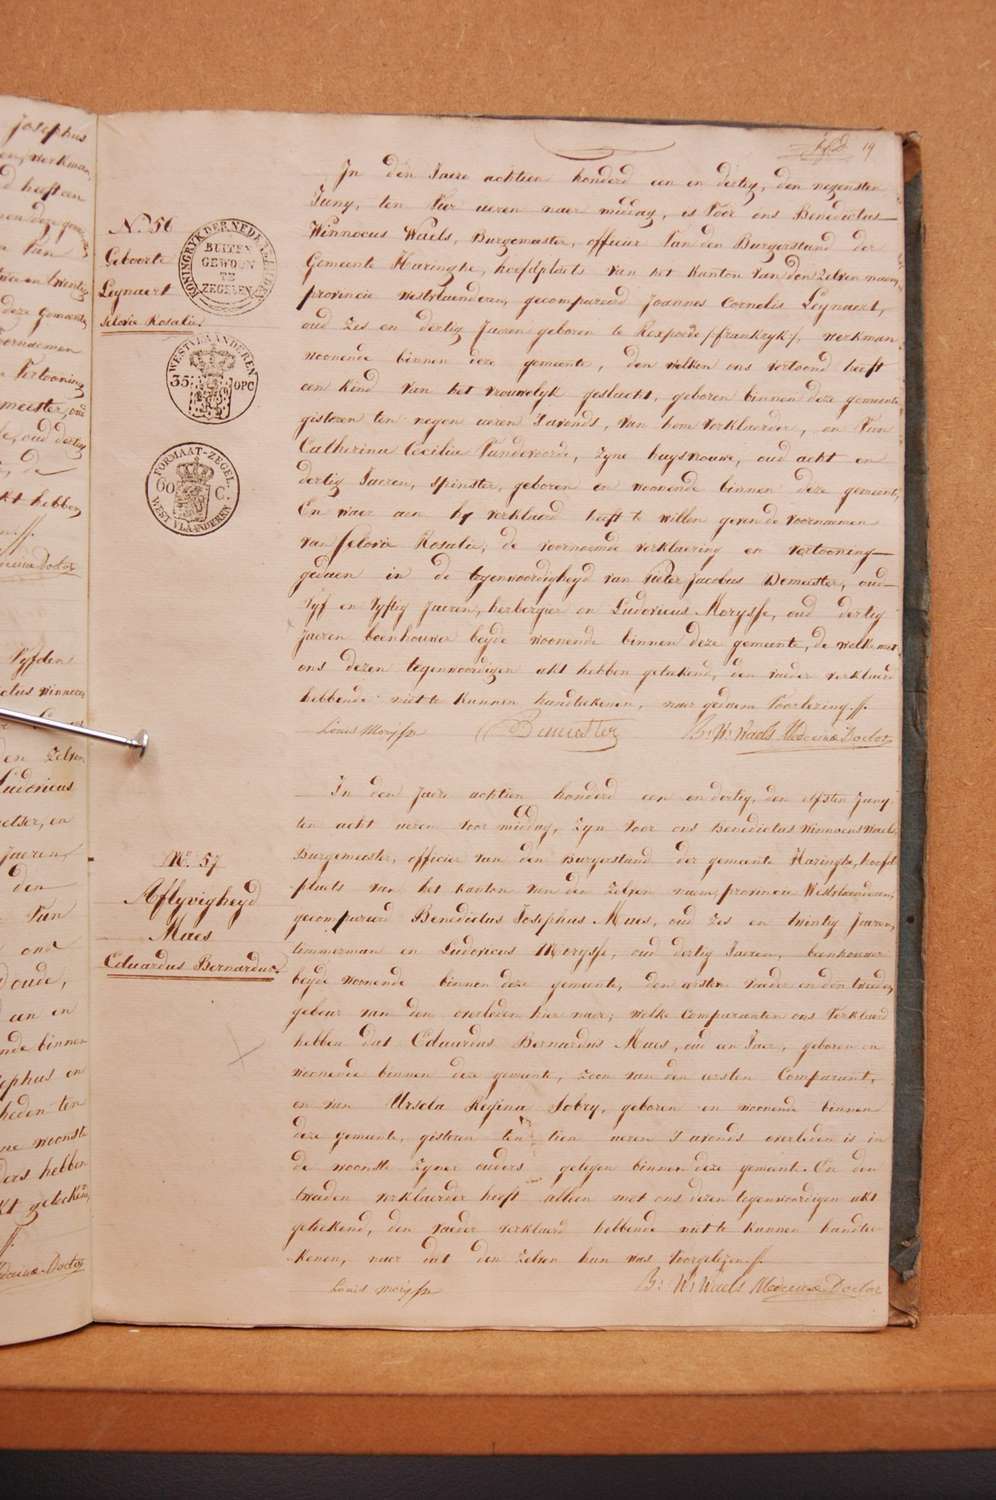 19
N.º 56
Geboorte
Leynaert
Silovie Rosalie.
KONINGRYK DER NEDERLANDEN
BUITEN
GEWOON
TE
ZEGELEN
WESTVLAANDEREN
35 OPC
FORMAAT-ZEGEL
60 C.
WEST VLAANDEREN
In den Jaere achtien honderd een en dertig, den negensten
Juny, ten Vier ueren naer middag, is Voor ons Benedictus
Winnocus Waels, Burgemeester, officier Van den Burgerstand der
Gemeente Haringhe, hoofdplaets van het Kanton Van den Zelven naem,
provincie Westvlaenderen, gecompareerd Joannes Cornelis Leynaert,
oud Zes en dertig Jaeren geboren te Rexpoede /frankryk/, werkman
woonende binnen deze gemeente, den welken ons vertoond heeft
een kind van het vrouwelyk geslacht, geboren binnen deze gemeente
gisteren ten negen ueren s'avonds, van hem verklaerder, en Van
Catherina Cecilia Vandevoorde, Zyne huysvrouwe, oud acht en
dertig Jaeren, spinster, geboren en woonende binnen deze gemeente,
En waer aen hy verklaerd heeft te willen geven de voornamen
van Silovie Rosalie, de voornoemde verklaering en vertooning
gedaen in de tegenwoordigheyd van Pieter Jacobus Demeester, oud
Vyf en Vyftig Jaeren, herbergier en Ludovicus Morysse, oud dertig
Jaeren beenhouwer beyde woonende binnen deze gemeente, de welke met
ons dezen tegenwoordigen akt hebben geteekend, den vader verklaerd
hebbende niet te kunnen handteekenen, naer gedaene Voorlezing.
Louis Morysse Demeester B: W: Waels Medicinæ Doctor
In den Jaere achtien honderd een en dertig, den elfsten Juny
ten acht ueren voor middag, Zyn voor ons Benedictus Winnocus Waels
Burgemeester, officier van den Burgerstand der gemeente Haringhe, hoofd
plaets van het kanton van den Zelven naem, provincie Westvlaenderen,
gecompareerd Benedictus Josephus Maes, oud Zes en twintig Jaeren,
timmerman en Ludovicus Morysse, oud dertig Jaeren, beenhouwer
beyde woonende binnen deze gemeente, den eersten vader en den tweeden
gebeur van den overleden hier naer; welke Comparanten ons Verklaerd
hebben dat Eduardus Bernardus Maes, oud een Jaer, geboren en
woonende binnen deze gemeente, Zoon van den eersten Comparant,
en van Ursula Regina Sobry, geboren en woonende binnen
deze gemeente, gisteren ten tien ueren s'avonds overleden is in
de woonste Zyner ouders gelegen binnen deze gemeente. En den
tweeden verklaerder heeft alleen met ons dezen tegenwoordigen akt
geteekend, den vader verklaerd hebbende niet te kunnen handtee-
kenen, naer dat den Zelven hun was voorgelezen.
Louis Morysse B: W: Waels Medicinæ Doctor
Nr. 57
Aflyvigheyd
Maes
Eduardus Bernardus.